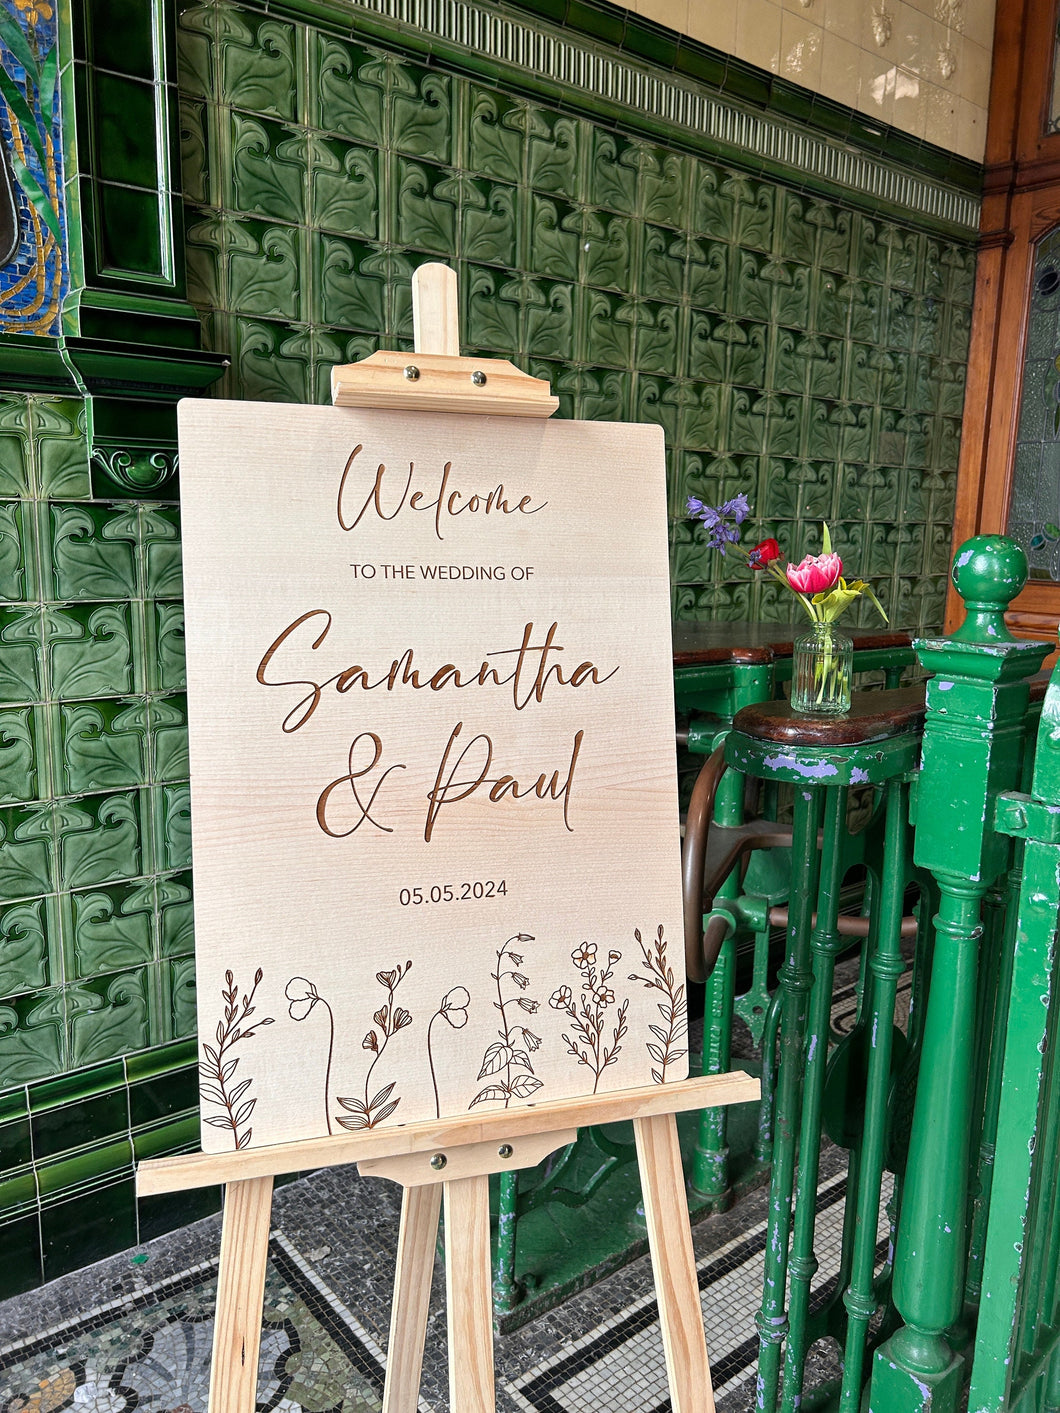 Welcome
TO THE WEDDING OF
Samantha
& Paul
05.05.2024